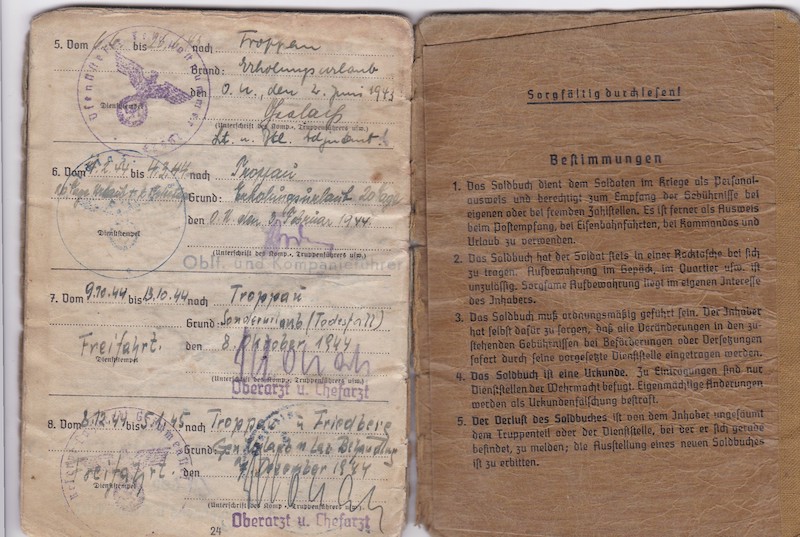 5. Vom bis nach Troppau
Grund: Erholungsurlaub
den O.U., den 2. Juni 1943
Dienststempel
(Unterschrift des Komp.-, Truppenführers usw.)
Lt. u. Adjutant
6. Vom bis 4.2.44 nach Troppau
Grund: Erholungsurlaub 20 Tage
den O.U. den Februar 1944
Dienststempel
(Unterschrift des Komp.-, Truppenführers usw.)
Oblt. und Kompanieführer
7. Vom 9.10.44 bis 13.10.44 nach Troppau
Grund: Sonderurlaub (Todesfall)
Freifahrt. den 8. Oktober 1944
Dienststempel
(Unterschrift des Komp.-, Truppenführers usw.)
Oberarzt u. Chefarzt
8. Vom 8.12.44 bis 5.1.45 nach Troppau u Friedberg
Grund: Gen. Urlaub
Freifahrt. den 7. Dezember 1944
Dienststempel
(Unterschrift des Komp.-, Truppenführers usw.)
Oberarzt u. Chefarzt
24
Sorgfältig durchlesen!
Bestimmungen
1. Das Soldbuch dient dem Soldaten im Kriege als Personal-
ausweis und berechtigt zum Empfang der Gebührnisse bei
eigenen oder bei fremden Zahlstellen. Es ist ferner als Ausweis
beim Postempfang, bei Eisenbahnfahrten, bei Kommandos und
Urlaub zu verwenden.
2. Das Soldbuch hat der Soldat stets in einer Rocktasche bei sich
zu tragen. Aufbewahrung im Gepäck, im Quartier usw. ist
unzulässig. Sorgsame Aufbewahrung liegt im eigenen Interesse
des Inhabers.
3. Das Soldbuch muß ordnungsmäßig geführt sein. Der Inhaber
hat selbst dafür zu sorgen, daß alle Veränderungen in den zu-
stehenden Gebührnissen bei Beförderungen oder Versetzungen
sofort durch seine vorgesetzte Dienststelle eingetragen werden.
4. Das Soldbuch ist eine Urkunde. Zu Eintragungen sind nur
Dienststellen der Wehrmacht befugt. Eigenmächtige Änderungen
werden als Urkundenfälschung bestraft.
5. Der Verlust des Soldbuches ist von dem Inhaber ungesäumt
dem Truppenteil oder der Dienststelle, bei der er sich gerade
befindet, zu melden; die Ausstellung eines neuen Soldbuches
ist zu erbitten.